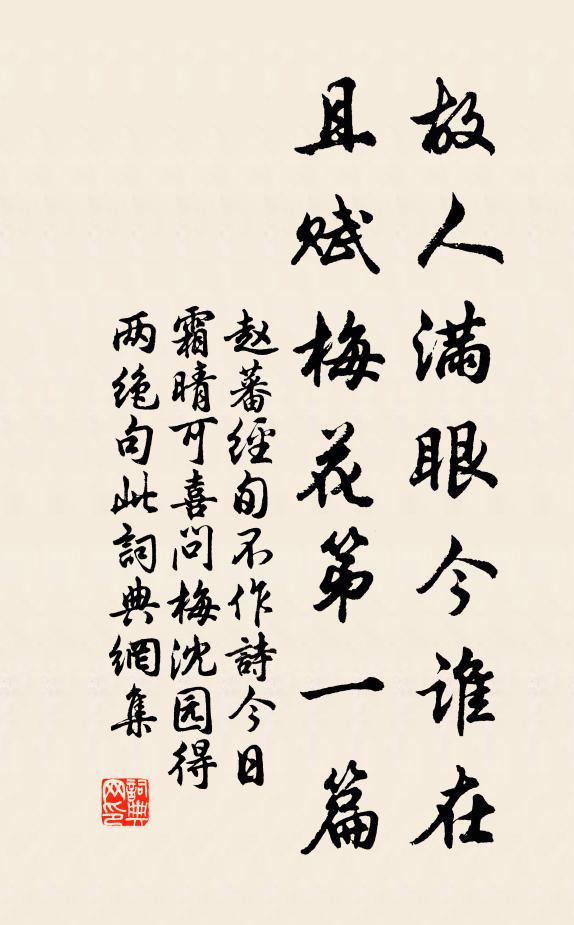 故人满眼今谁在
且赋梅花第一篇
赵蕃經旬不作詩今日
霜晴可喜問梅沈园得
两绝句此詞典網集
詞典
网印